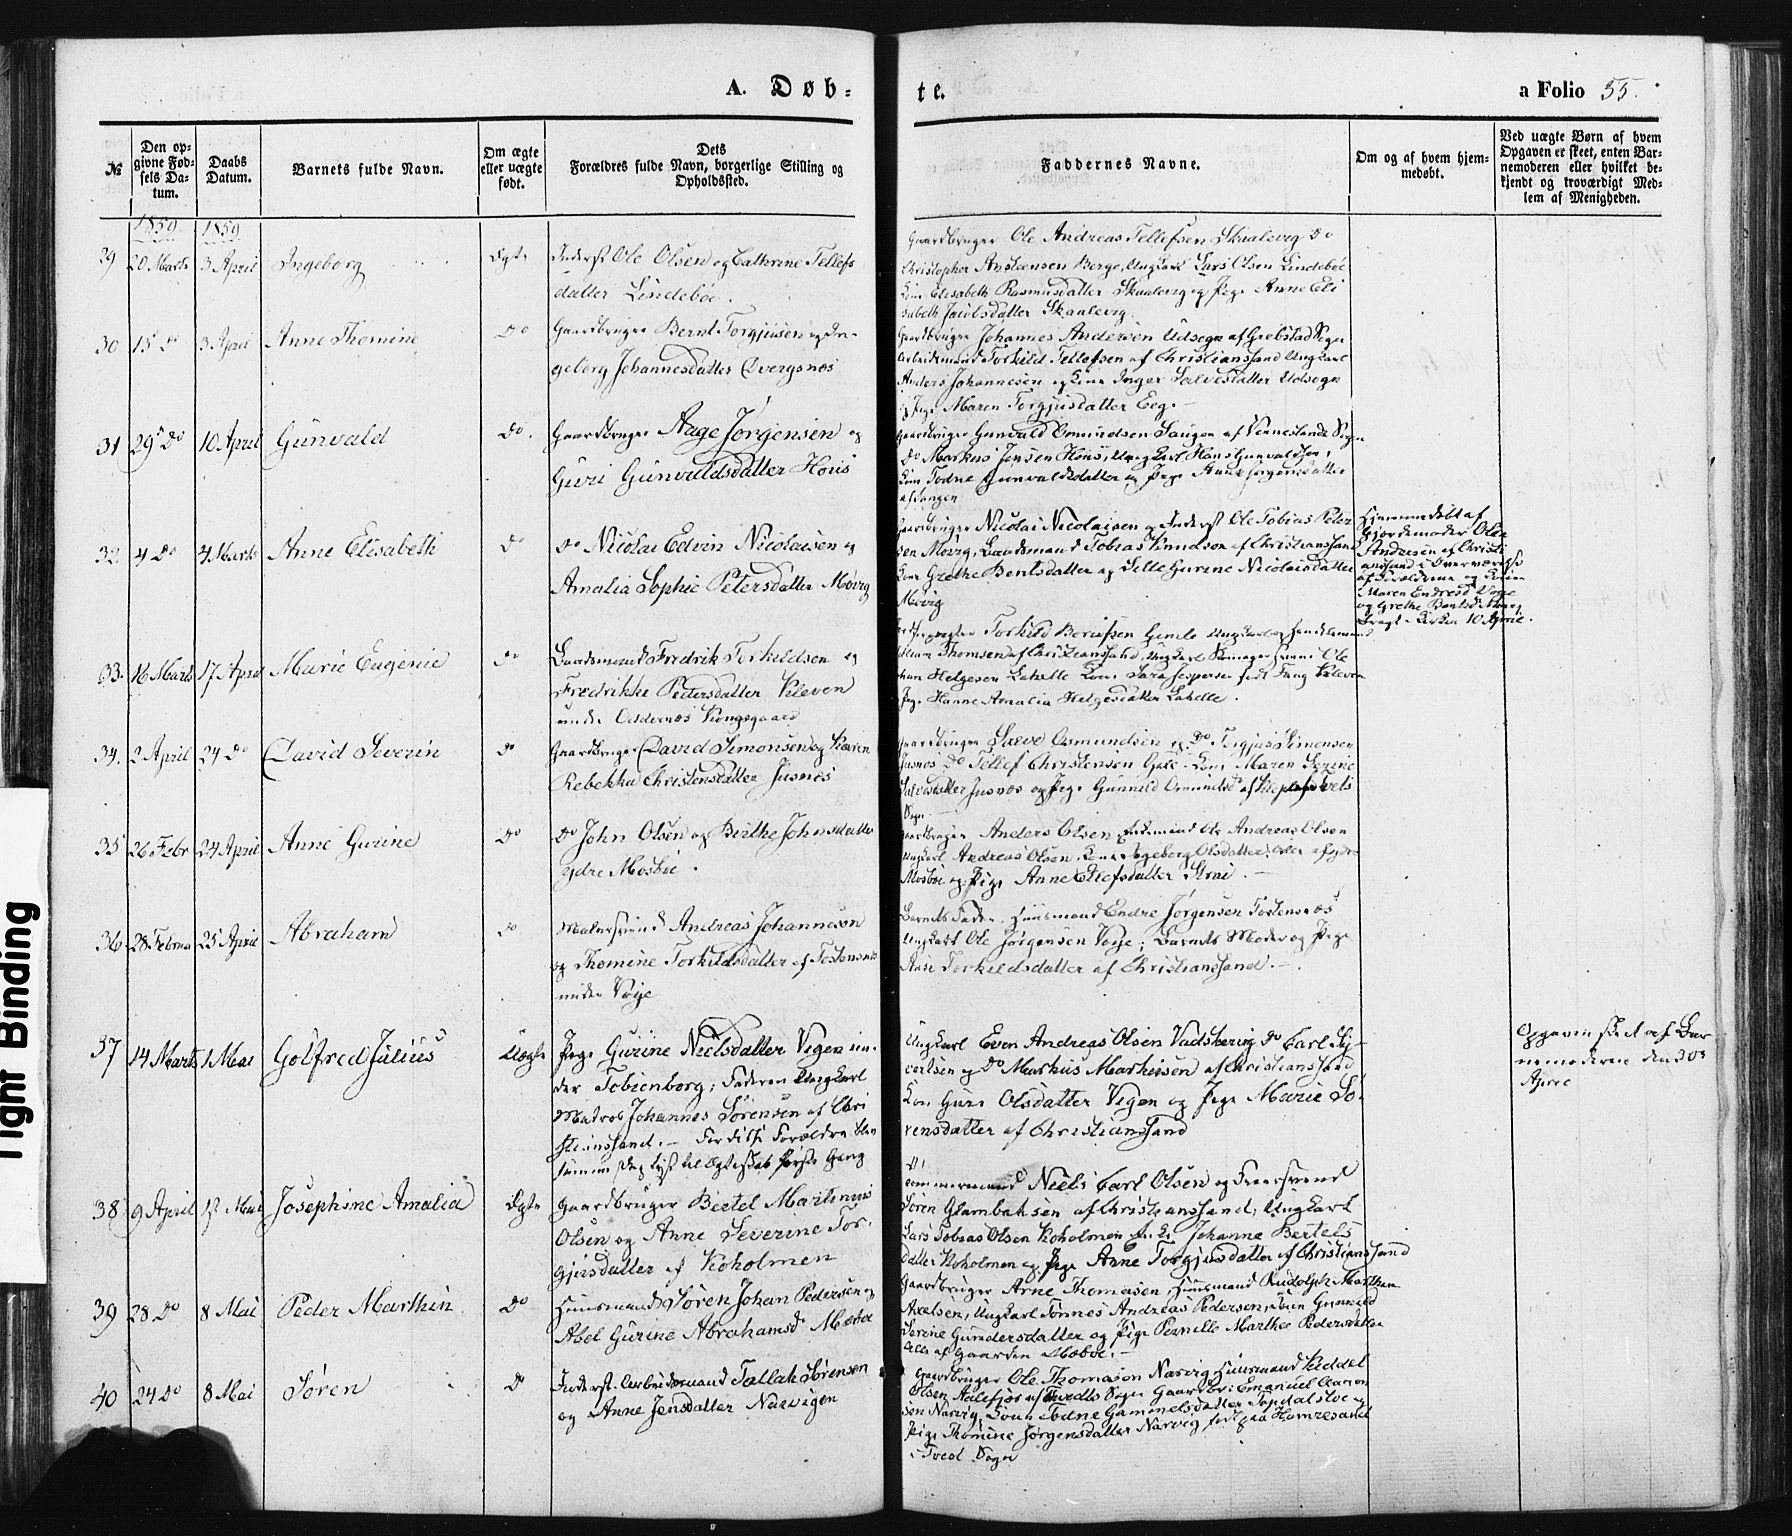 A. Døb-
te.
a Folio 55.
№
Den op-
givne Fød-
sels Da-
tum.
Daabs
Datum.
Barnets fulde Navn.
Om ægte
eller uægte
født.
Dets
Forældres fulde Navn, borgerlige Stilling og
Opholdssted.
Faddernes Navne.
Om og af hvem hjem-
medøbt.
Ved uægte Børn af hvem
Opgaven er skeet, enten Bar-
nemoderen eller hvilket be-
kjendt og troværdigt Med-
lem af Menigheden.
1859 1859
29 20 Marts 3 April Ingeborg Ægte
Inderst Ole Olsen og Cathrine Tellefs
datter Lindebøe.
Gaardbruger Ole Andreas Tellefsen Skaalevig Do
Christopher Anstensen Berge, Ungkarl Lars Olsen Lindebøe
Kone Elisabeth Rasmusdatter Skaalevig og Pige Anne Eli
sabeth Jacobsdatter Skaalevig
30 15 Do 3 April Anne Thomine Do
Gaardbruger Bernt Torgjusen og In-
geborg Johannesdatter Dvergsnes
Gaardbruger Johannes Andersen Udsogn af Grebstad Sogn
Arbeidsmand Torkild Tellefsen af Christianssand Ungkarl
Anders Johannesen og Kone Inger Salvesdatter Udsogn
og Pige Maren Torgjusdatter Eeg.
31 29 Do 10 April Gunvald Do.
Gaardbruger Aage Jørgensen og
Guri Gunvaldsdatter Hous
Gaardbruger Gunvald Omundsen Saugen af Venneslands Sogn
Do Markus Jensen Hous, Ungkarl Hans Gunvaldsen,
Kone Todne Gunvaldsdatter og Pige Anne Jørgensdatter
af Saugen
32 4 Do 4 Marts Anne Elisabeth Do
Do Nicolai Edvin Nicolaisen og
Amalia Sophie Petersdatter Møvig
Gaardbruger Nicolai Nicolaisen og Inderst Ole Tobias Peter
sen Møvig, Baadsmand Tobias Knudsen af Christianssand
Kone Grethe Bentsdatter og Sille Gurine Nicolaisdatter
Møvig
Hjemmedøbt af
Gjordemoder Olea
Andresen af Christi
anssand i Overværelse
af Forældrene og Konen
Maren Endresd Voie
og Grethe Bentsd Møvig
Bragt i Kirken 10 April.
33. 16 Marts 17 April Marie Eugenie Do
Baadsmand Fredrik Torkildsen og
Fredrikke Pedersdatter Kleven
under Oddernes Kongsgaard
Torkild Gimle Ungkarl og Handelsmand
Thomsen af Christianssand, Ungkarl Ole
Helgesen Lahelle Kone Sara Jespersen født Fang Kleven
Pige Hanne Amalia Helgesdatter Lahelle.
34. 2 April 24 Do David Severin Do
Gaardbruger David Simonsen og Karen
Rebekka Christensdatter Jusnes
Gaardbruger Salve Osmundsen og Do Torgjus Simonsen
Jusnes Do Tellef Christensen Kone Maren Serine
Salvesdatter Jusnes og Pige Gunnild Osmundsd af
Sogn
35 26 Febr 24 April Anne Gurine Do
Do John Olsen og Birthe Johnsdatter
ydre Mosbøe.
Gaardbruger Anders Olsen, Enkemand Ole Andreas Olsen
Ungkarl Andreas Olsen, Kone Ingeborg Olsdatter, alle af ydre
Mosbøe og Pige Anne Ellefsdatter Strai.
36 28 Februar 25 April Abraham Do
Malersvend Andreas Johannesen
og Thomine Torkildsdatter af Tostensnes
under Voje
Barnets Fader, Huusmand Endre Jørgensen Tostensnes
Ungkarl Ole Jørgensen Voje; Barnets Moder og Pige
Anne Torkildsdatter af Christianssand.
37 14 Marts 1 Mai Golfred Julius Uægte
Pige Gurine Neelsdatter Vigen un-
der Tobienborg; Faderen Ungkarl
Matros Johannes Sørensen af Chri
stianssand. – For disse Forældre
samme Dag lyst til Ægteskab første Gang
Ungkarl Even Andreas Olsen Vadskerig Do Carl Sy-
vertsen og Do Markus Markusen af Christianssand
Kone Guri Olsdatter Vigen og Pige Marie Sø-
rensdatter af Christianssand
Opgaven skeet af Bar
nemoderen den 30te
April
38 9 April 1st Mai Josephine Amalia Ægte
Gaardbruger Bertel Martinius
Olsen og Anne Severine Tor-
gjusdatter af Koholmen
Tømmermand Niels Carl Olsen og Snersvend
Søren Glambaksen af Christianssand; Ungkarl
Lars Tobias Olsen Koholmen Enke Johanne Bertels
datter Koholmen og Pige Anne Torgjusdatter af Christianssand
39 28 Do 8 Mai Peder Marthin Do
Huusmand Søren Johan Pedersen og
Abel Gurine Abrahamsd Mæbøe
Gaardbruger Arne Thomasen, Huusmand Rudolph Marthin
Axelsen, Ungkarl Tønnes Andreas Pedersen, Kone Gunnild
Serine Gundersdatter og Pige Pernille Marthe Pedersdatter
alle af Gaarden Mæbøe. –
40 24 Do 8 Mai Søren Do
Inderst Arbeidsmand Tallak Sørensen
og Anne Jensdatter Narvigen
Gaardbruger Ole Thomason Narvig Huusmand Kiddel
Olsen Aalefjær af Tvedts Sogn Gaardbr: Emanuel Aanon
sen Narvig, Kone Todne Gammelsdatter Topdalsloe og
Pige Thomine Jørgensdatter Narvig født paa Homresand
i Tveed Sogn
Tight Binding